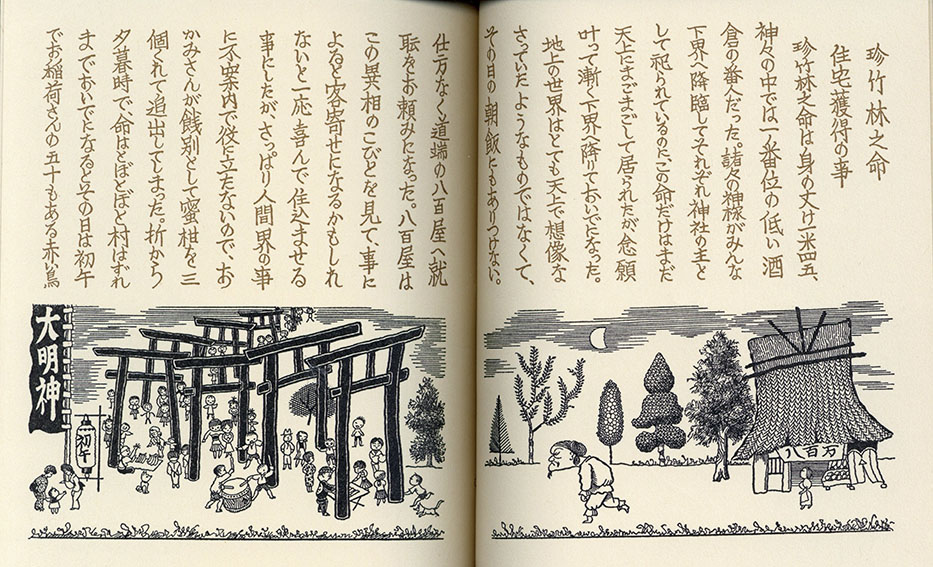 珍竹林之命
住宅獲得の事
珍竹林之命は身の丈け一米四五、
神々の中では一番位の低い酒
倉の番人だった。諸々の神様がみんな
下界へ降臨してそれぞれ神社の主と
して祀られているのにこの命だけはまだ
天上にまごまごして居られたが念願
叶って漸く下界へ降りておいでになった。
地上の世界はとても天上で想像な
さっていたようなものではなくて、
その日の朝飯にもありつけない。
仕方なく道端の八百屋へ就
職をお頼みになった。八百屋は
この異相のこびとを見て、事に
よると客寄せになるかもしれ
ないと一応喜んで住込ませる
事にしたが、さっぱり人間界の事
に不案内で役に立たないので、お
かみさんが餞別として蜜柑を三
個くれて追出してしまった。折から
夕暮時で、命はとぼとぼと村はずれ
までおいでになるとその日は初午
でお稲荷さんの五十もある赤い鳥
八百万
大明神
初午